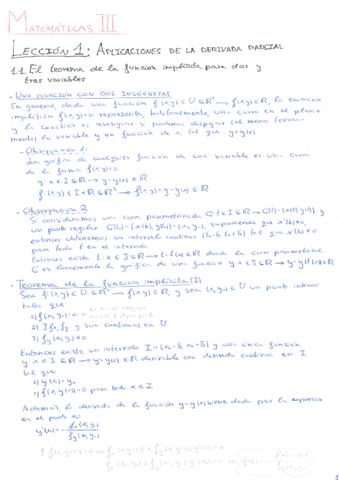 MATEMÁTICAS III
LECCIÓN 1: APLICACIONES DE LA DERIVADA PARCIAL
1.1. El teorema de la función implícita para dos y
tres variables
· UNA ECUACIÓN CON DOS INCÓGNITAS
En general, dada una función f(x,y)∈U⊆ℝ²→f(x,y)∈ℝ, la ecuación
implícita f(x,y)=0 representa, habitualmente, una curva en el plano
y la cuestión es averiguar si podemos despejar (al menos local-
mente) la variable y en función de x, tal que y=y(x)
- Observación 1:
La gráfica de cualquier función de una variable es una curva
de la forma f(x,y)=0
y: x∈I⊆ℝ→y=y(x)∈ℝ
f:(x,y)∈I×ℝ⊆ℝ²→f(x,y)=y-y(x)∈ℝ
- Observación 2
Si consideramos una curva parametrizada C: t∈I⊆ℝ→C(t)=(x(t),y(t)) y
un punto regular C(t₀)=(x(t₀),y(t₀))=(x₀,y₀), suponiendo que x'(t₀)≠0,
entonces obtenemos un intervalo continuo (t₀-δ, t₀+δ) tal que x'(t)≠0
para todo t en el intervalo
Entonces existe t: x∈J⊆ℝ→t=t(x)∈ℝ donde la curva parametrizada
C es localmente la gráfica de una función
- Teorema de la función implícita (I)
Sea f:(x,y)∈U⊆ℝ²→f(x,y)∈ℝ, y sea (x₀,y₀)∈U un punto interior
tales que:
1) f(x₀,y₀)=0
2) ∃fx, fy y son continuas en U
3) fy(x₀,y₀)≠0
Entonces existe un intervalo I=(x₀-δ, x₀+δ) y una única función
y: x∈I⊆ℝ→y=y(x)∈ℝ derivable con derivada continua en I
tal que:
1) y(x₀)=y₀
2) f(x,y(x))=0 para todo x∈I
Además, la derivada de la función y=y(x) viene dada por la expresión
en el punto x₀:
y'(x₀)=-fx(x₀,y₀)/fy(x₀,y₀)